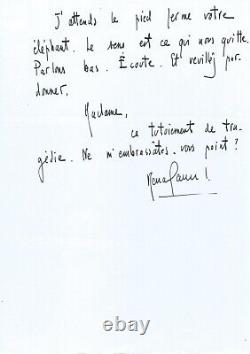 J'attends le pied ferme votre
éléphant. Le sens est ce qui nous quitte.
Parlons bas. Écoute. Et veuillez par-
donner,
Madame,
ce tutoiement de tra-
gédie. Ne m'embrassâtes-vous point ?
© ebay.com